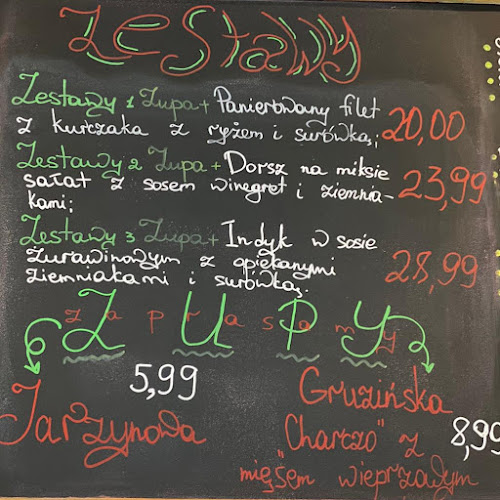 Zestawy
Zestawy 1 Zupa + Panierowany filet
z kurczaka z ryżem i surówką; 20,00
Zestawy 2 Zupa + Dorsz na miksie
sałat z sosem winegret i ziemnia- 23,99
kami;
Zestawy 3 Zupa + Indyk w sosie
żurawinowym z opiekanymi
ziemniakami i surówką. 28,99
zapraszamy
ZUPY
5,99
Jarzynowa
Gruzińska
„Charczo" z 8,99
mięsem wieprzowym